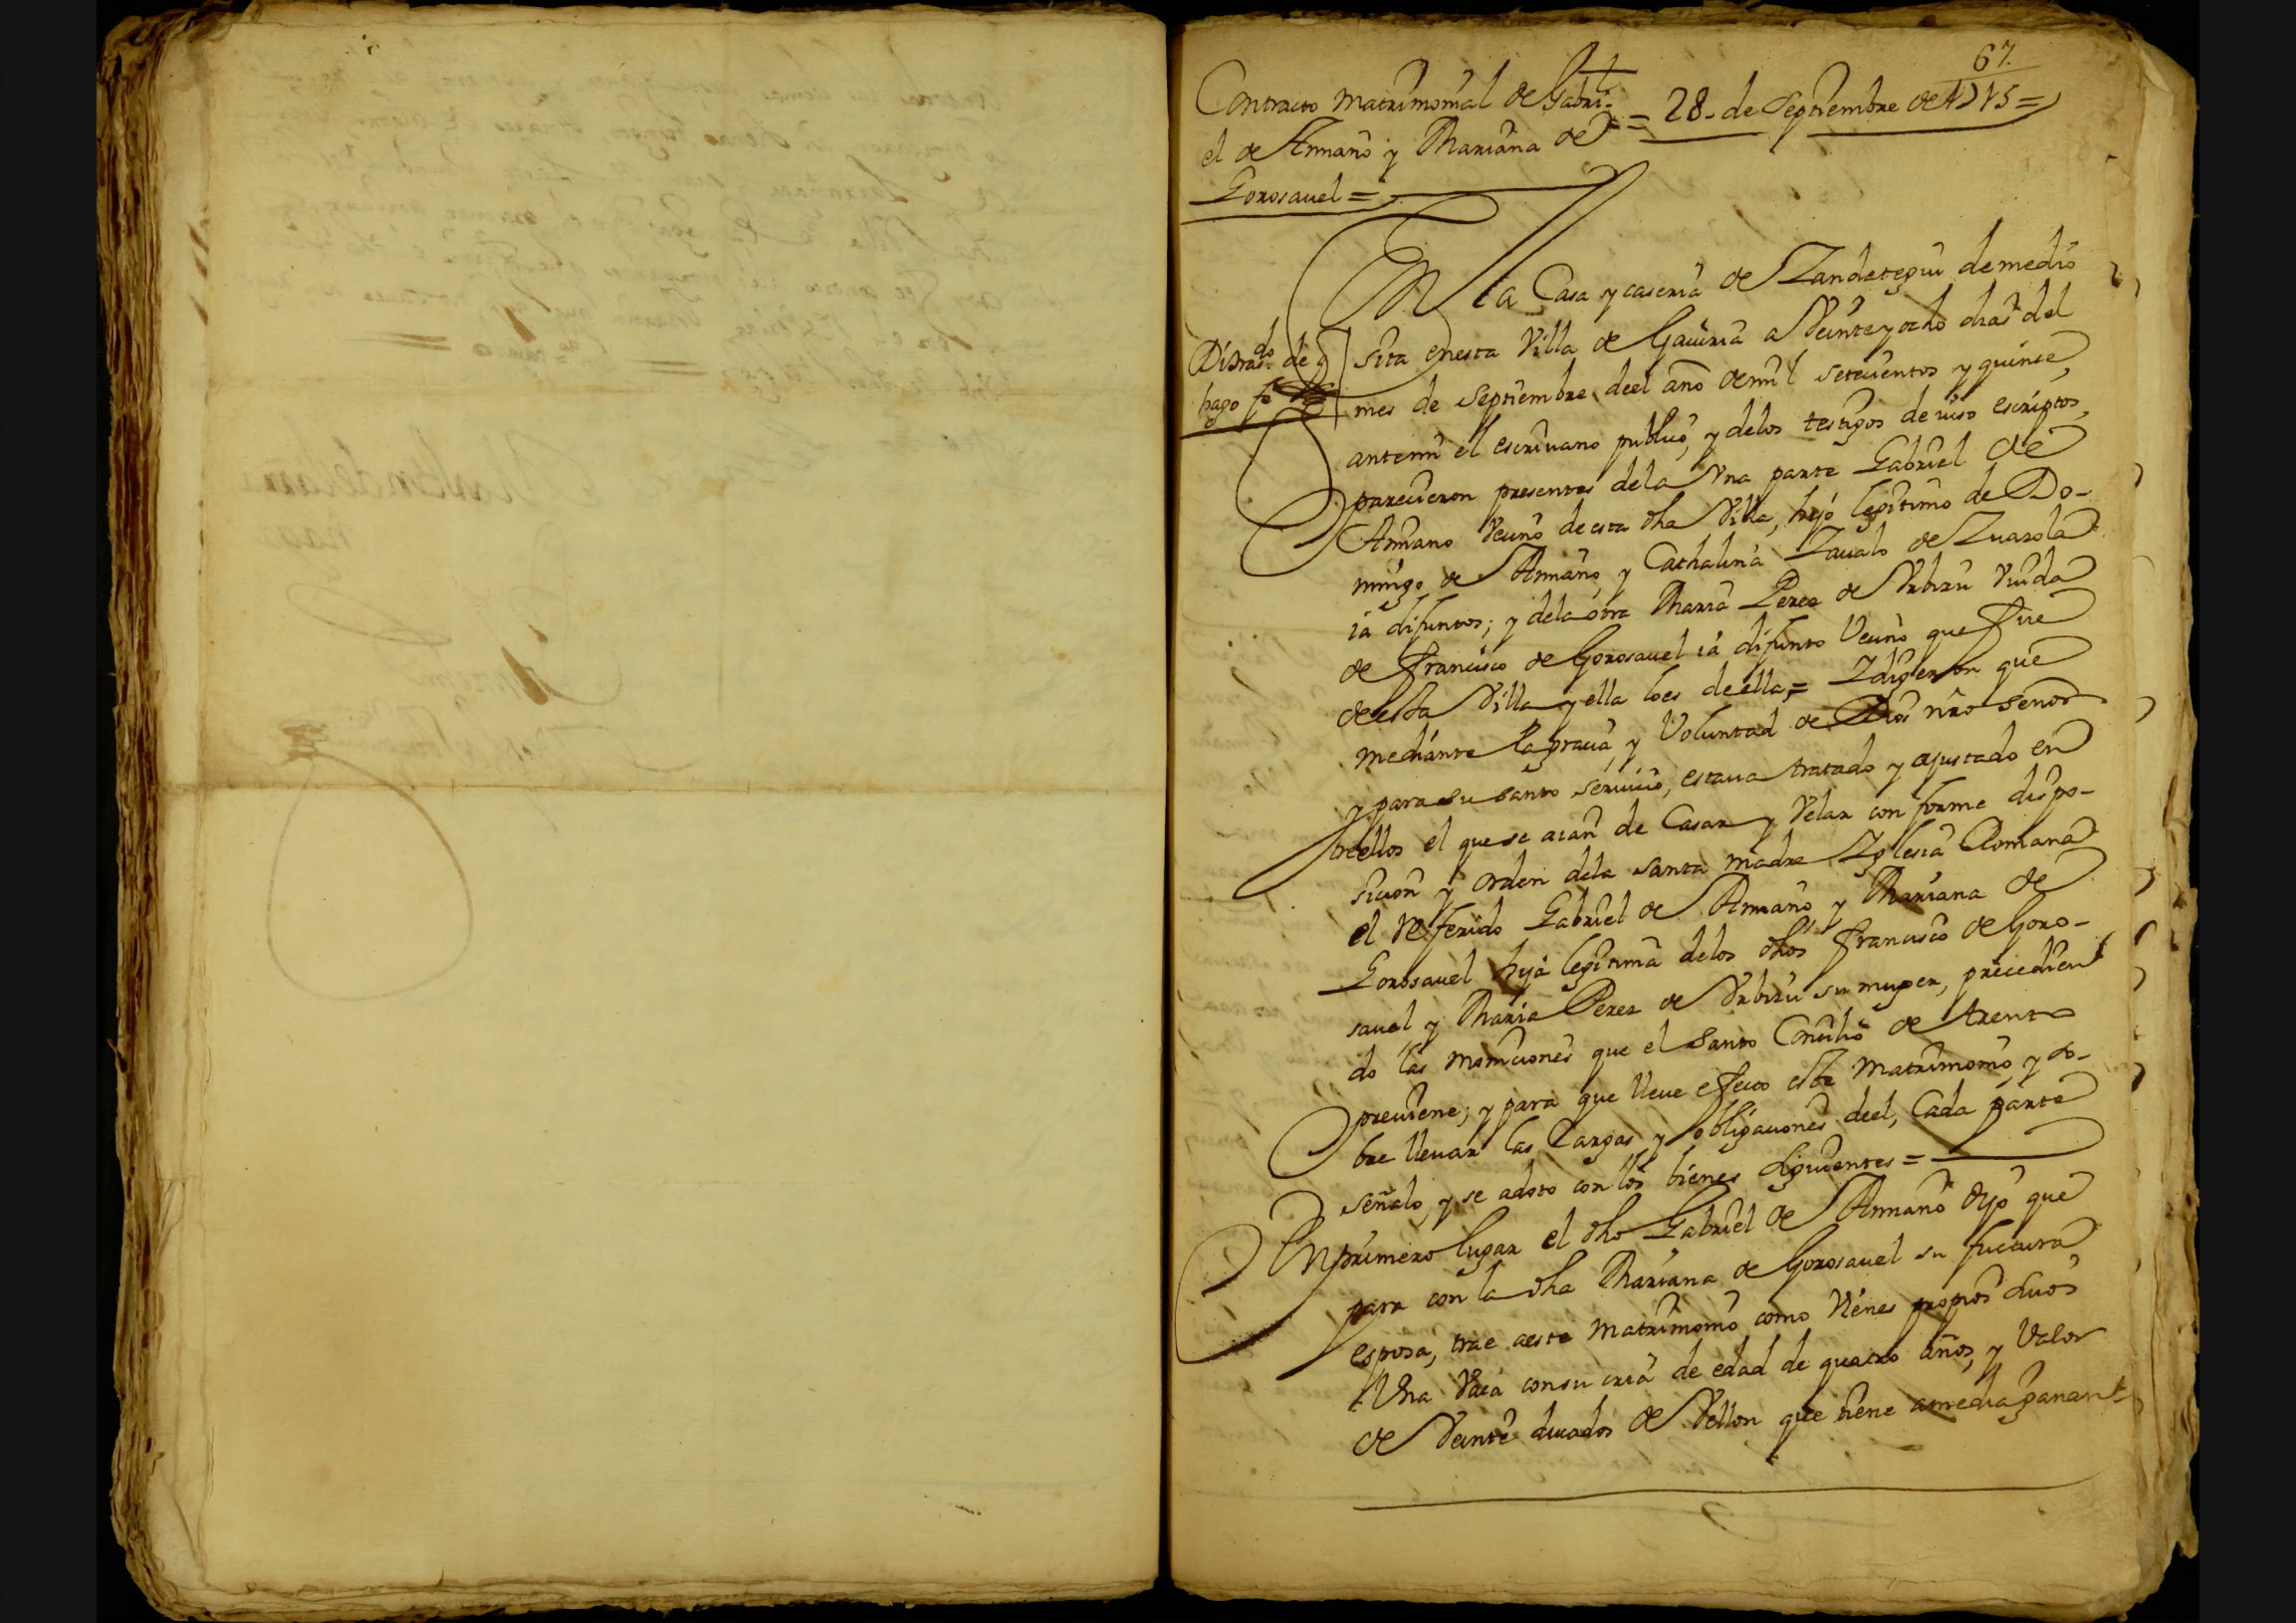 67.
Contracto matrimonial de Gabri-
el de Amiano y Mariana de
Gorosauel =
= 28 - de Septiembre de 1715 =
En la Casa y caseria de Zandategui de medio
sita en esta Villa de Gauiria a Veinte y ocho dias del
mes de Septiembre de el año de mil setecientos y quinse,
ante mi el escriuano publico, y de los testigos de iuso escriptos,
parecieron presentes de la Vna parte Gabriel de
Amiano Vecino de esta dha Villa, hijo legitimo de Do-
mingo de Amiano y Cathalina Zaualo de Zuazola
ia difuntos; y de la otra Maria Perez de Vrbizu Viuda
de Francisco de Gorosauel ia difunto Vecino que fue
de esta Villa y ella lo es de ella = I digeron que
mediante la gracia, y Voluntad de Dios nro señor
y para su santo seruicio, estaua tratado y ajustado en
tre ellos el que se aian de Casar y Velar conforme dispo-
sicion y orden de la santa madre Iglesia Romana
el referido Gabriel de Amiano y Mariana de
Gorosauel hija legitima de los dhos Francisco de Goro-
sauel, y Maria Perez de Vrbizu su muger, precedien
do las moniciones que el santo Concilio de trento
preuiene; y para que lleue efecto este Matrimonio, y so-
bre lleuar las Cargas y obligaciones de el, Cada parte
señalo, y se adoto con los bienes siguientes =
En primero lugar el dho Gabriel de Amiano dijo que
para con la dha Mariana de Gorosauel su fuctura
esposa, trae a este Matrimonio como Vienes propios suos
Vna Vaca con su cria de edad de quatro años, y Valor
de Veinte ducados de Vellon que tiene a media ganan
hago fe